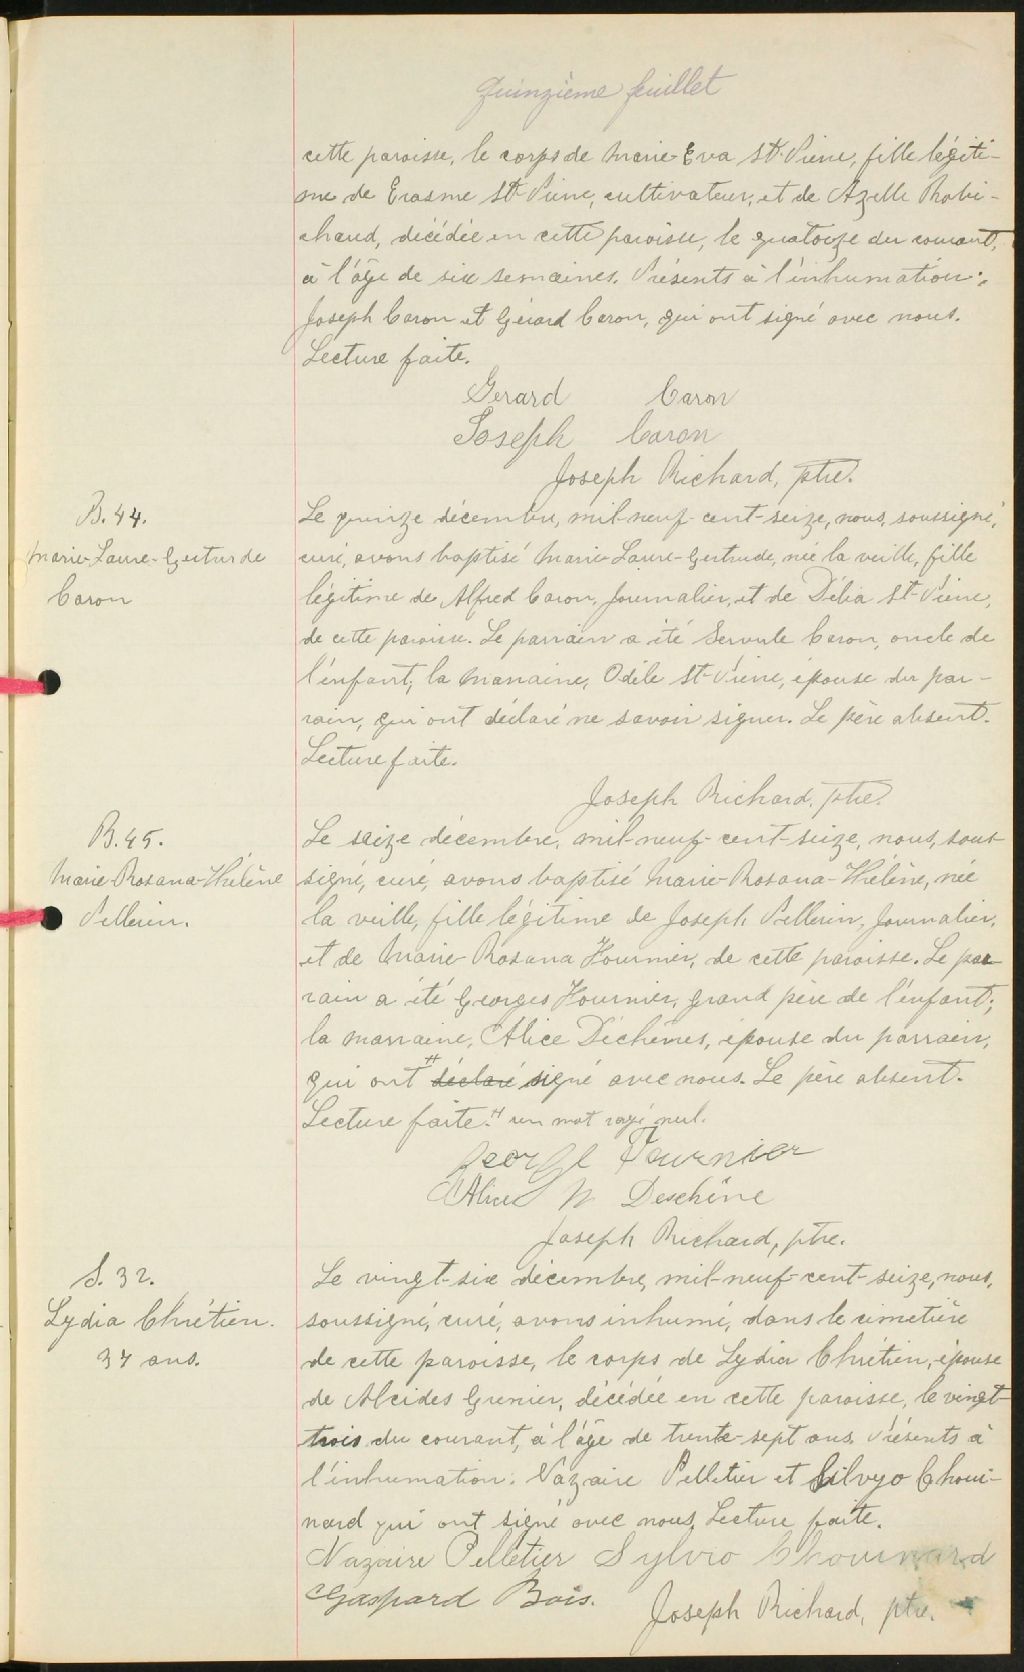 quinzième feuillet
cette paroisse, le corps de Marie-Eva St-Pierre, fille légiti-
me de Erasme St-Pierre, cultivateur, et de Azelle Robi-
chaud, décédée en cette paroisse, le quatorze du courant,
à l'âge de six semaines. Présents à l'inhumation:
Joseph Caron et Gérard Caron, qui ont signé avec nous.
Lecture faite.
Gerard Caron
Joseph Caron
Joseph Richard, ptre.
B. 44.
Marie-Laure-Gertrude
Caron
Le quinze décembre, mil-neuf-cent-seize, nous, soussigné,
curé, avons baptisé Marie-Laure-Gertrude, née la veille, fille
légitime de Alfred Caron, journalier, et de Délia St-Pierre,
de cette paroisse. Le parrain a été Servule Caron, oncle de
l'enfant; la marraine, Odile St-Pierre, épouse du par-
rain, qui ont déclaré ne savoir signer. Le père absent.
Lecture faite.
Joseph Richard, ptre.
B. 45.
Marie-Rosana-Hélène
Pellerin.
Le seize décembre, mil-neuf-cent-seize, nous, sous-
signé, curé, avons baptisé Marie-Rosana-Hélène, née
la veille, fille légitime de Joseph Pellerin, journalier,
et de Marie-Rosana Fournier, de cette paroisse. Le par-
rain a été Georges Fournier, grand père de l'enfant;
la marraine, Alice Déchênes, épouse du parrain,
qui ont # déclaré signé avec nous. Le père absent.
Lecture faite. # un mot rayé nul.
George Fournier
Alice Deschêne
Joseph Richard, ptre.
S. 32.
Lydia Chrétien.
37 ans.
Le vingt-six décembre, mil-neuf-cent-seize, nous,
soussigné, curé, avons inhumé, dans le cimetière
de cette paroisse, le corps de Lydia Chrétien, épouse
de Alcides Grenier, décédée en cette paroisse, le vingt-
trois du courant, à l'âge de trente-sept ans. Présents à
l'inhumation: Nazaire Pelletier et Silvyo Choui-
nard qui ont signé avec nous. Lecture faite.
Nazaire Pelletier Sylvio Chouinard
Gaspard Bois.
Joseph Richard, ptre.